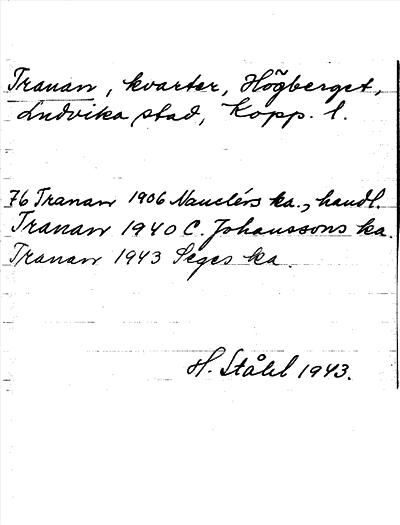 Tranan, kvarter, Högberget,
Ludvika stad, Kopp. l.
76 Tranan 1906 Nauclérs ka., handl.
Tranan 1940 C. Johanssons ka.
Tranan 1943 Seges ka.
H. Ståhl 1943.